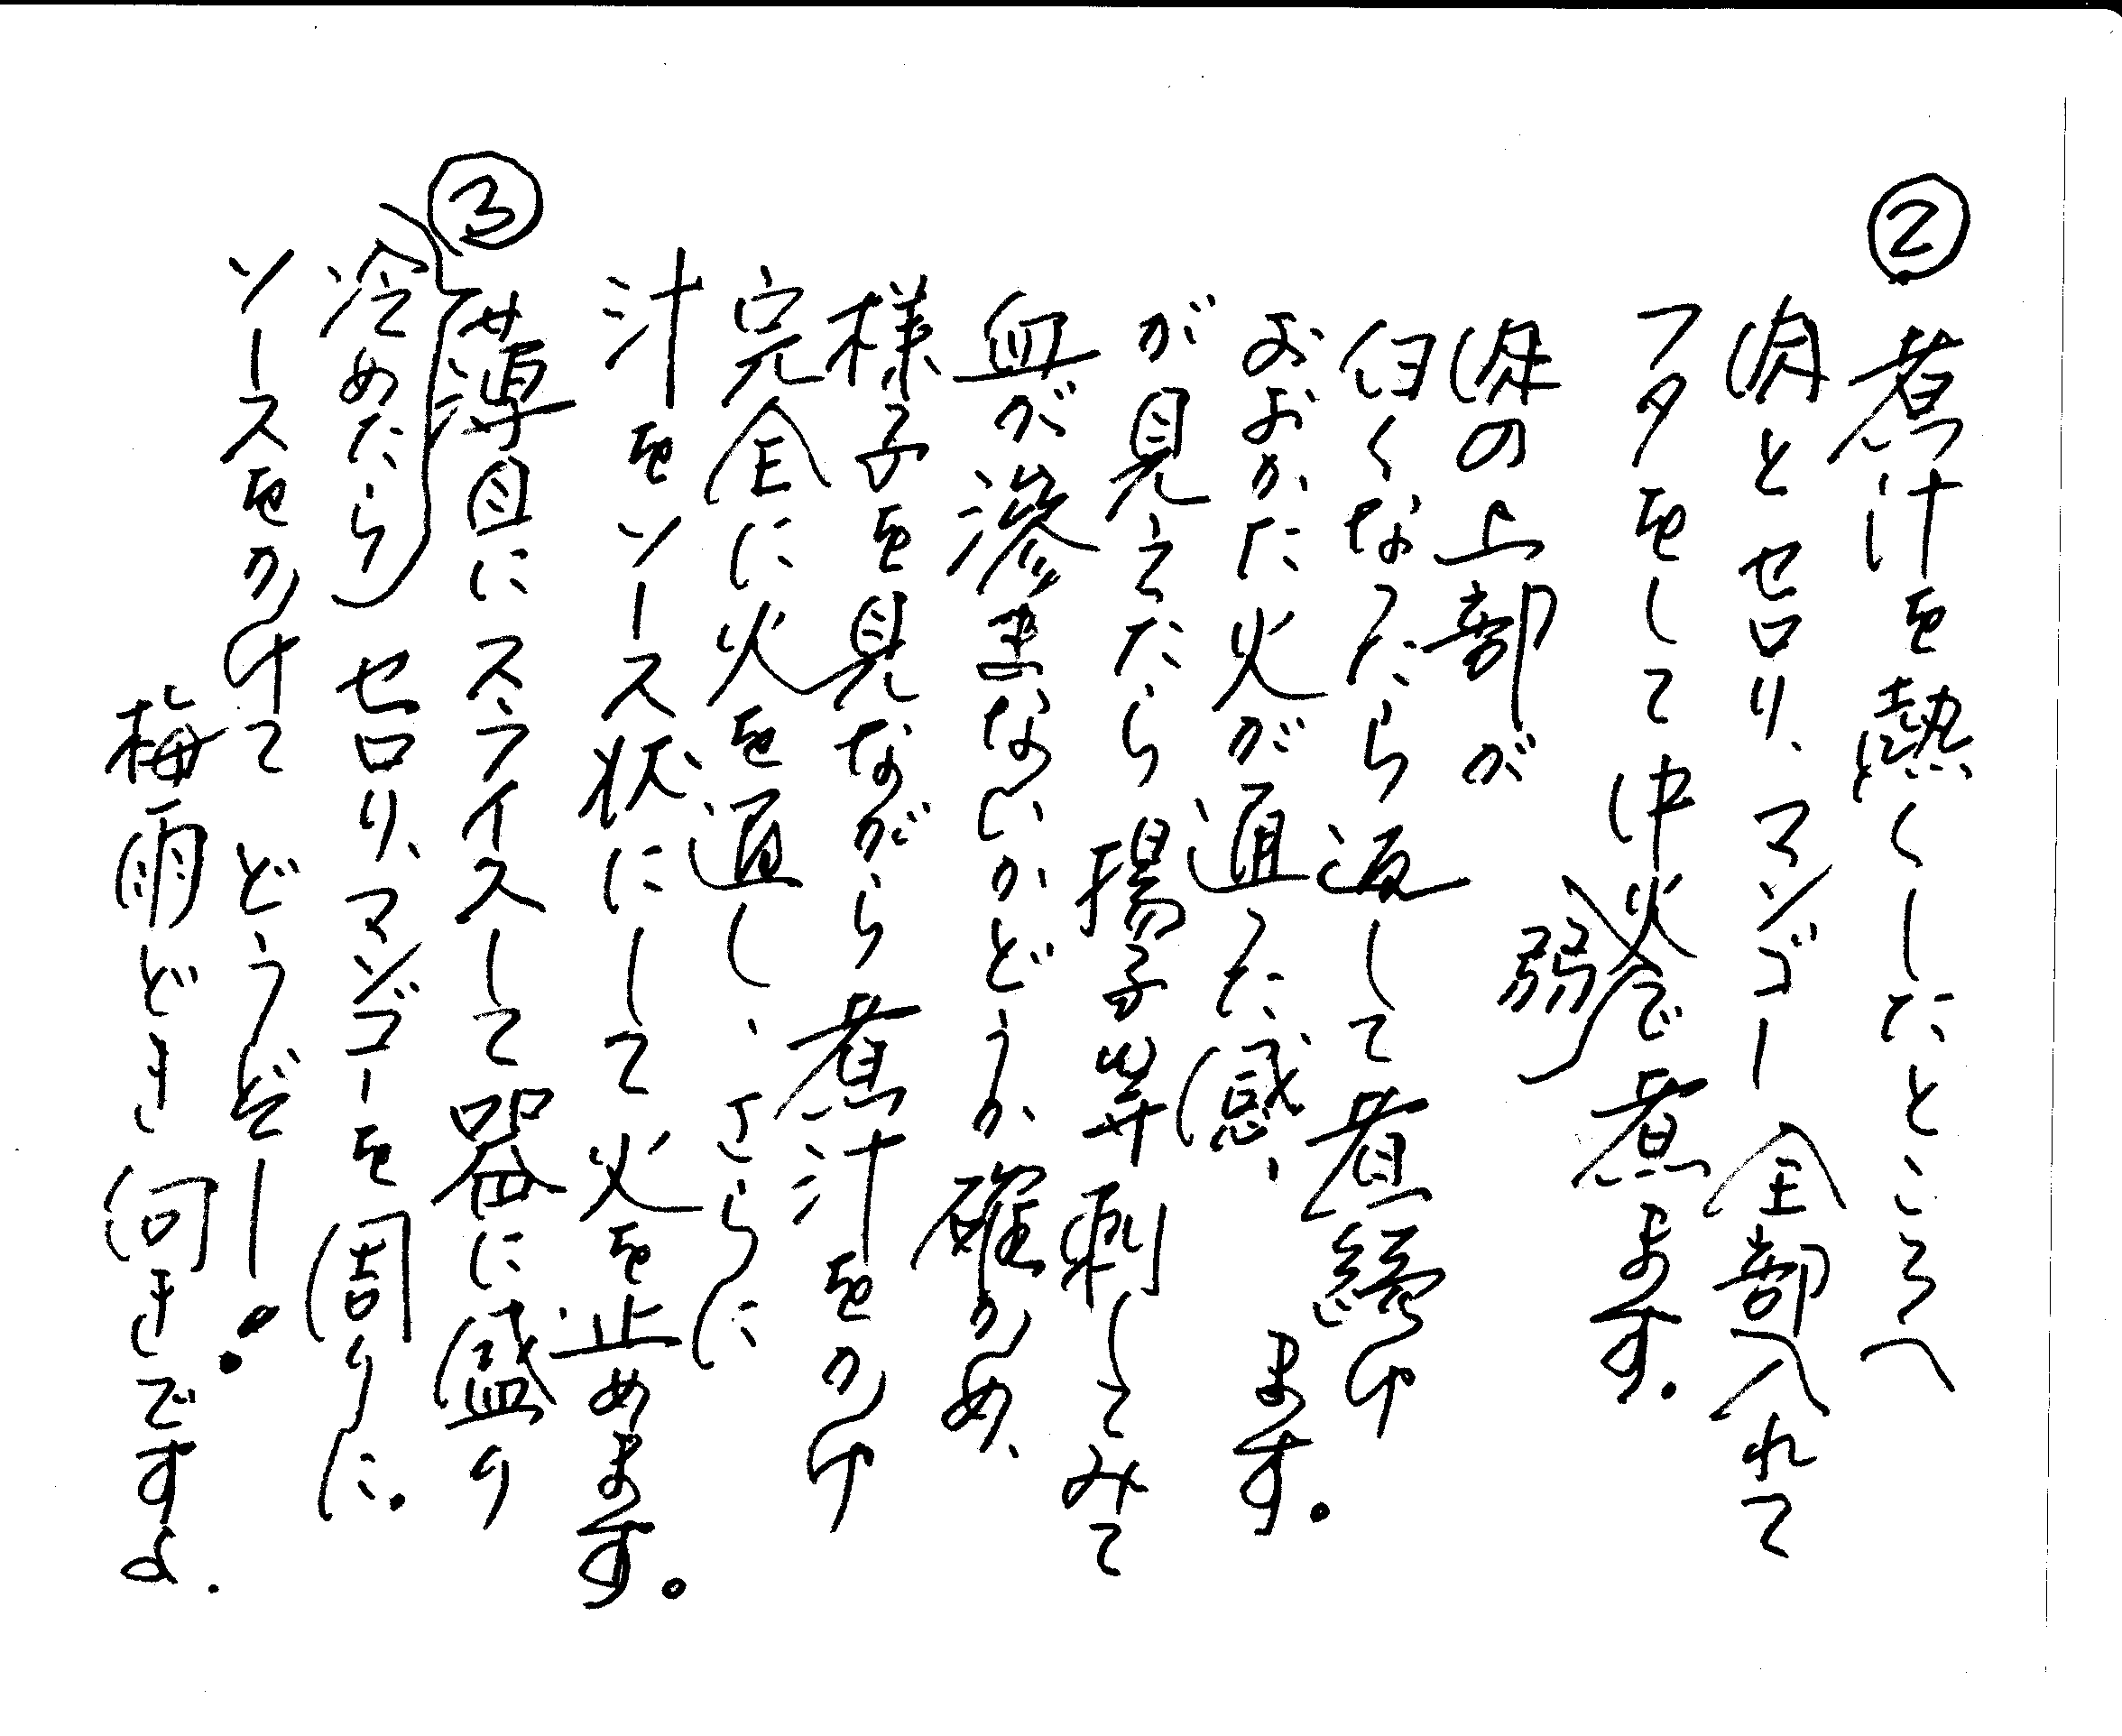 ② 煮汁を熱くしたところへ
肉とセロリ、マンゴー全部入れて
フタをして中弱火で煮ます。
肉の上部が
白くなったら返して煮続け
ます。
おおかた火が通った感、
が見えたら揚子等刺してみて
血が滲まないかどうか確かめ、
様子を見ながら煮汁をかけ
完全に火を通し、さらに
汁をソース状にして火を止めます。
③ 冷めたら薄目にスライスして器に盛り
セロリ、マンゴーを周りに。
ソースをかけて どうぞー!
梅雨どき向きですよ.